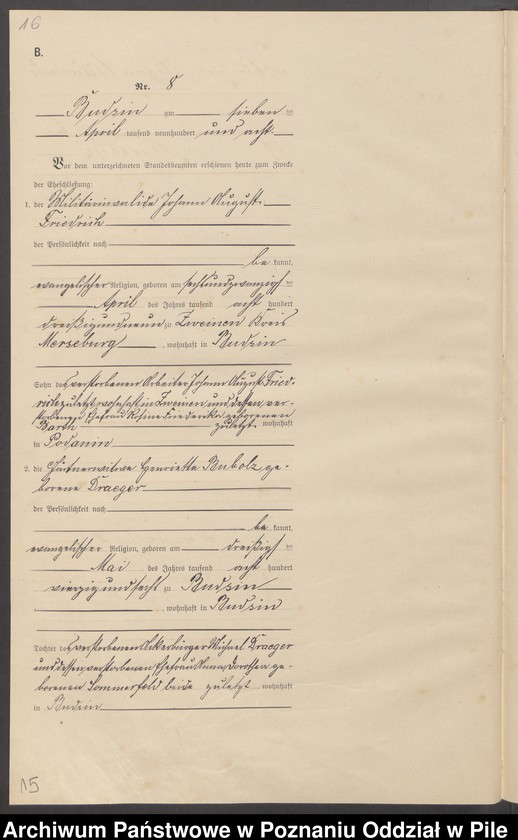 16
B.
Nr. 8
Budzin am sieben ten
April tausend neunhundert und acht
Vor dem unterzeichneten Standesbeamten erschienen heute zum Zwecke
der Eheschließung:
1. der Militärinvalide Johann August
Friedrich
der Persönlichkeit nach
be kannt,
evangelischer Religion, geboren am sechsundzwanzigsten
April des Jahres tausend acht hundert
dreißigundneun zu Zweinen Kreis
Merseburg, wohnhaft in Budzin
Sohn des verstorbenen Arbeiter Johann August Fried-
rich zuletzt wohnhaft in Zweimen und dessen ver-
storbenen Ehefrau Rosine Friederike geborenen
Barth zuletzt wohnhaft
in Podanin
2. die Gärtnerwitwe Henriette Rubolz ge-
borene Draeger
der Persönlichkeit nach
be kannt,
evangelischer Religion, geboren am dreißigsten
Mai des Jahres tausend acht hundert
vierzigundsechs zu Budzin
, wohnhaft in Budzin
Tochter des verstorbenen Ackerbürger Michael Draeger
und dessen verstorbenen Ehefrau Anna Dorothea ge-
borenen Sommerfeld beide zuletzt wohnhaft
in Budzin
15
Archiwum Państwowe w Poznaniu Oddział w Pile